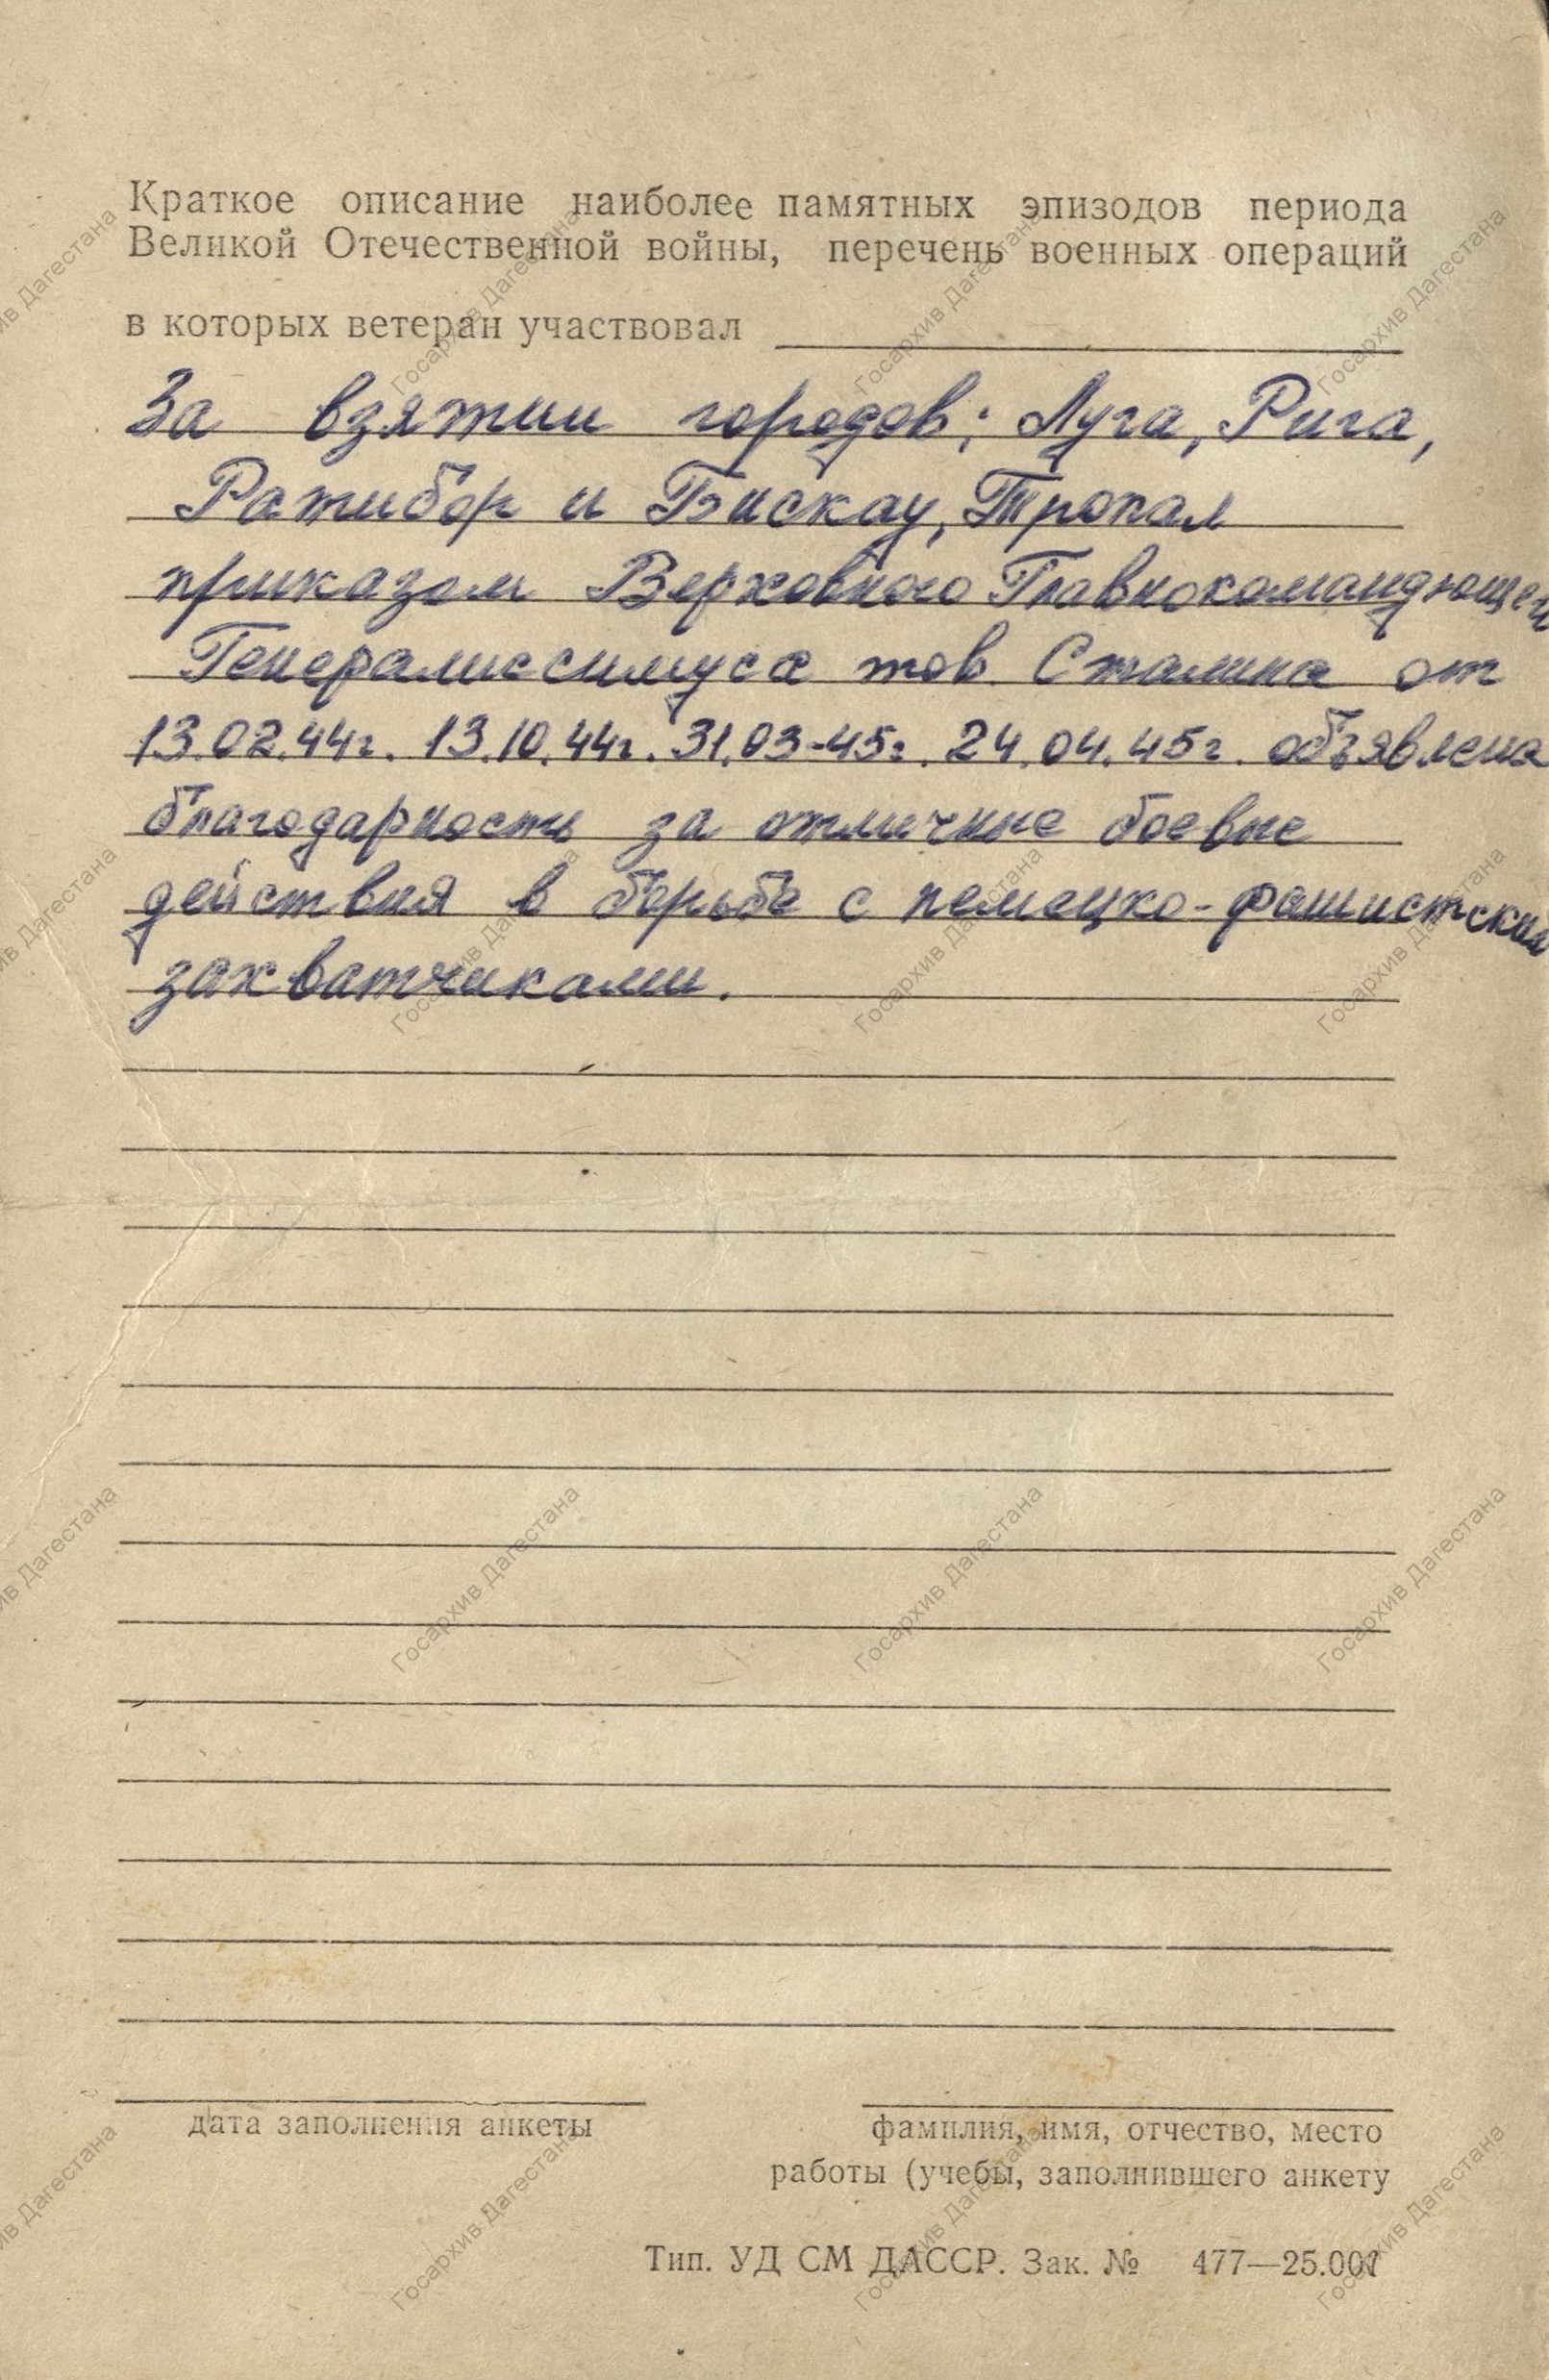 Краткое описание наиболее памятных эпизодов периода
Великой Отечественной войны, перечень военных операций
в которых ветеран участвовал
За взятии городов: Луга, Рига,
Ратибор и Бискау, Тропал
приказом Верховного Главнокомандующего
Генералиссимуса тов. Сталина от
13.02.44г. 13.10.44г. 31.03-45г. 24.04.45г. объявлена
благодарность за отличные боевые
действия в борьбе с немецко-фашистским
захватчиками.
дата заполнения анкеты
фамилия, имя, отчество, место
работы (учебы, заполнившего анкету
Тип. УД СМ ДАССР. Зак. № 477—25.000
Госархив Дагестана